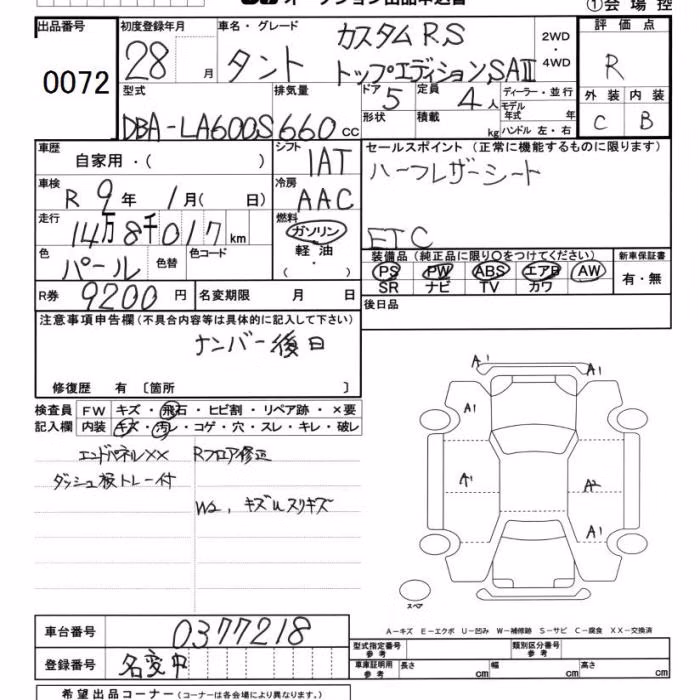 オークション出品申込書
①会場控
出品番号
0072
初度登録年月
28 月
車名・グレード
タント
カスタムRS
トップエディションSAⅢ
2WD
・
4WD
評価点
R
外装 内装
C B
型式
DBA-LA600S
排気量
660 cc
ドア
5
定員
4人
形状
積載
kg
ディーラー・並行
モデル年式 年
ハンドル 左・右
車歴
自家用・( )
シフト
IAT
セールスポイント (正常に機能するものに限ります)
ハーフレザーシート
ETC
車検
R 9年 1月( 日)
冷房
AAC
走行
14万8千017 km
燃料
ガソリン
軽油
( ・ )
色
パール
色替
色コード
装備品 (純正品に限り○をつけてください)
PS PW ABS エアB AW
SR ナビ TV カワ
新車保証書
有・無
R券
9200 円
名変期限 月 日
後日品
注意事項申告欄(不具合内容等は具体的に記入して下さい)
ナンバー後日
修復歴 有 〔箇所 〕
検査員記入欄
FW キズ・飛石・ヒビ割・リペア跡・×要
内装 キズ・汚レ・コゲ・穴・スレ・キレ・破レ
エンドパネルXX Rフロア修正
ダッシュ板トレー付
W2、キズUスリキズ
A1
A1
A1
A1
A2
A1
スペア
A-キズ E-エクボ U-凹み W-補修跡 S-サビ C-腐食 XX-交換済
車台番号
0377218
登録番号
名変中
型式指定番号
参考
類別区分番号
参考
車庫証明用
参考
長さ cm 幅 cm 高さ cm
希望出品コーナー (コーナーは各会場により異なります。)